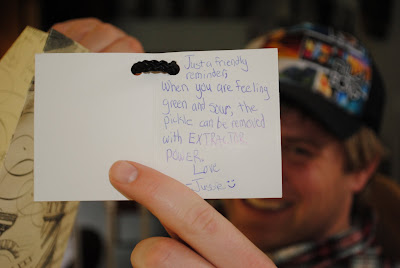 Just a friendly
reminder;
When you are feeling
green and sour, the
pickle can be removed
with EXTRACTOR
POWER.
Love